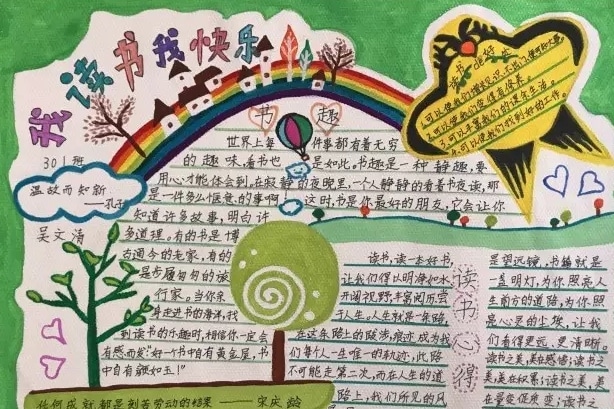 我读书我快乐
301班
吴文清
温故而知新
——孔子
书趣
世界上每件事都有着无穷
的趣味,看书也是如此。书趣是一种静趣,要
用心才能体会到。在寂静的夜晚里,一个人静静的看着书夜读,那
是一件多么惬意的事啊!这时,书是你最好的朋友,它会让你
知道许多故事,明白许
多道理。有的书是博
古通今的老家,有的
是步履匆匆的
行家。当你亲
身走进书的海洋,找
到读书的乐趣时,相信你一定会
有感而发:“好一个书中自有黄金屋,书
中自有颜如玉!”
读书的好处
1.可以使我们增长见识,不出门便可知大事。
2.可以使我们变得有修养。
3.可以丰富我们的课余生活。
4.可以使我们找到好的工作。
读书心得
读书,读一本好书,
让我们得以明净如水,
开阔视野,丰富阅历,益
于人生。人生就是一条路,
在这条路上的跋涉痕迹成为我
们每个人一生唯一的轨迹,此路
不可能走第二次,而在人生的道
路上,我们所见的风
是望远镜,书籍就是
一盏明灯,为你照亮人
生前方的道路,为你照
亮心灵的尘埃,让我
们看得更远、更清晰。
读书之美,美在感悟;读书之
美,美在积累;读书之美,美
任何成就都是刻苦劳动的结果——宋庆龄